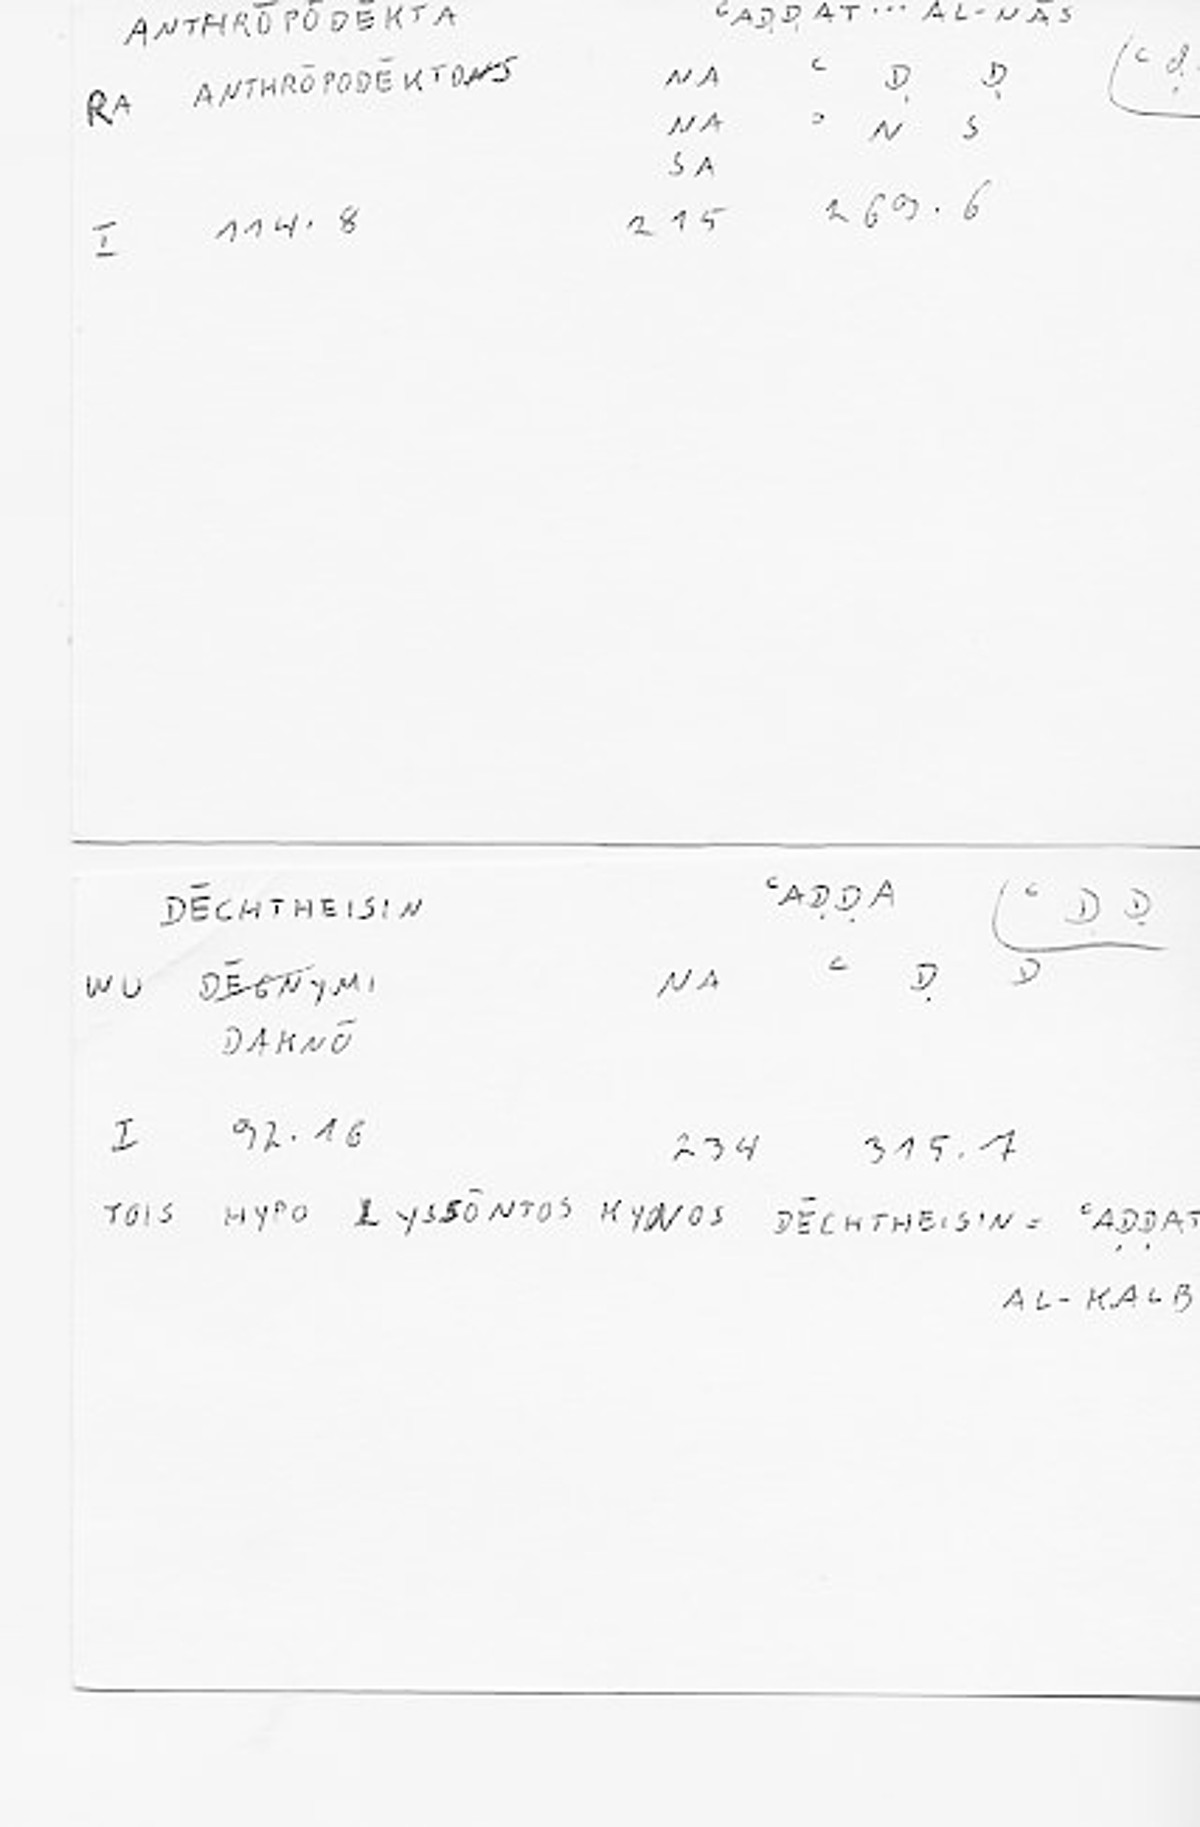 ANTHRŌPŌDĒKTA ʿAḌḌAT... AL-NĀS
RA ANTHRŌPODĒKTOS NA ʿ Ḍ Ḍ (ʿ ḍ
NA ʾ N S
SA
I 114.8 215 269.6
DĒCHTHEISIN ʿAḌḌA (ʿ Ḍ Ḍ
WU DĒGNYMI NA ʿ Ḍ D
DAKNŌ
I 92.16 234 315.1
TOIS HYPO LYSSŌNTOS KYNOS DĒCHTHEISIN = ʿAḌḌAT
AL-KALB